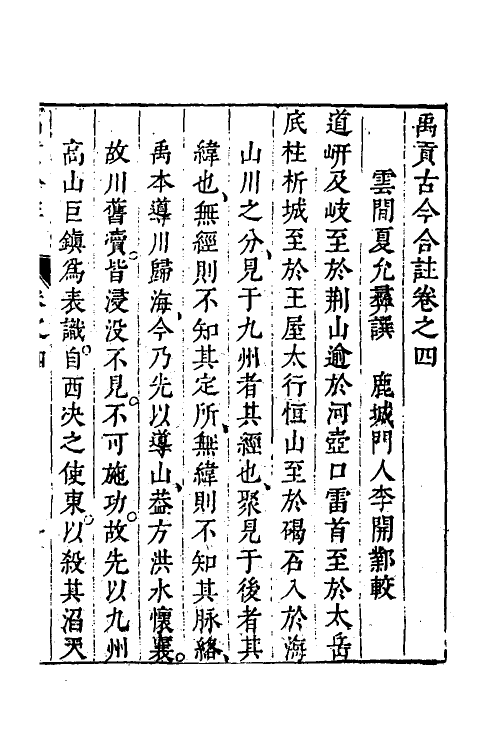 禹貢古今合註卷之四
雲間夏允彝譔　鹿城門人李開鄴較
道岍及岐至於荆山逾於河壺口雷首至於太岳
底柱析城至於王屋太行恒山至於碣石入於海
山川之分、見于九州者其經也、聚見于後者其
緯也、無經則不知其定所、無緯則不知其脉絡、
禹本導川歸海、今乃先以導山、葢方洪水懷襄。
故川舊瀆。皆浸没不見。不可施功。故先以九州
高山巨鎭爲表識。自西决之使東。以殺其滔天